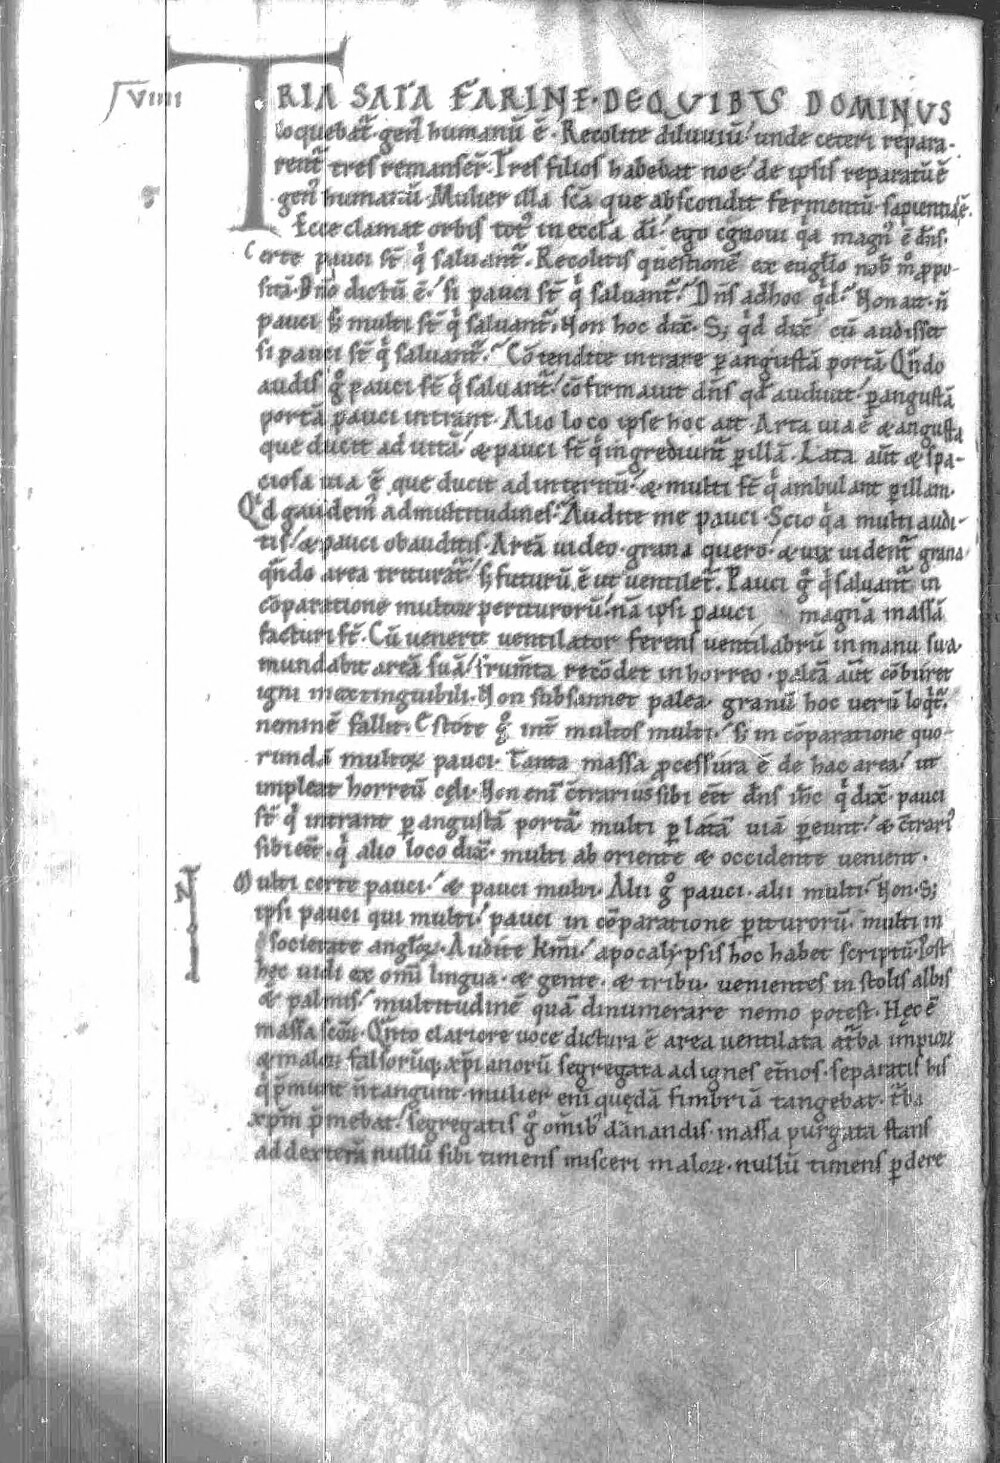 VIIII
TRIA SATA FARINE · DEQUIBUS DOMINUS
loquebat᷑ · gen᷒ humanū ē · Recolite diluuiū / unde ceteri repara-
rent᷑ tres remanser̄ · Tres filios habebat noe / de ipsis reparatū ē
gen᷒ humanū · Mulier illa sc̄a que abscondit fermentū sapientia ē ·
Ecce clamat orbis tot᷒ in eccl̄a dī / ego cognoui qͥa magn᷒ ē dn̄s ·
Certe pauci st̄ qͥ saluant᷑ · Recolitis questionē ex eug̅lio nob̄ m̊ propo-
sitā · Dn̄o dictū ē / si pauci st̄ qͥ saluant᷑ / Dn̄s ad hoc qͥd / Non ait · n̄
pauci s; multi st̄ qͥ saluant᷑ · Non hoc dix̄ · S; qͥd dix̄ / cū audisset
si pauci st̄ qͥ saluant᷑ / Cōtendite intrare ꝑ angustā portā Qn̄do
audis gͦ pauci st̄ qͥ saluant᷑ / cōfirmauit dn̄s qd̄ audiuit / ꝑ angustā
portā pauci intrant · Alio loco ipse hoc ait · Arta uia ē & angusta
que ducit ad uitā / & pauci st̄ qͥ ingrediunt᷑ ꝑ illā · Lata aūt & spa-
ciosa uia ē que ducit ad interitū / & multi st̄ qͥ ambulant ꝑ illam ·
Qͥd gaudem᷒ ad multitudines / Audite me pauci · Scio qͥa multi audi-
tis / & pauci obauditis · Areā uideo · grana quero / & uix uident᷑ grana
qn̄do area triturat᷑ / s; futurū ē ut uentilet᷑ · Pauci gͦ qͥ saluant᷑ in
cōparatione multoꝝ periturorū / nā ipsi pauci magnā massā
facturi st̄ · Cū uenerit uentilator ferens uentilabrū in manu sua ·
mundabit areā suā / frum̄ta recōdet in horreo · paleā aūt cōburet
igni inextinguibili · Non subsannet palea · granū hoc uerū loqͥt᷑ ·
neminē fallit · Estote gͦ int̄ multos multi / s; in cōparatione quo-
rundā multoꝝ pauci · Tanta massa ꝓcessura ē de hac area / ut
impleat horreū cęli · Non eni c̄trarius sibi eēt dn̄s ih̄c qͥ dix̄ · pauci
st̄ qͥ intrant ꝑ angustā portā · multi ꝑ latā uiā ꝑeunt / & c̄trari᷒
sibi eēt · qͥ alio loco dix̄ · multi ab oriente & occidente uenient ·
Multi certe pauci / & pauci multi · Alii gͦ pauci · alii multi / Non · S;
ipsi pauci qui multi / pauci in cōparatione ꝑiturorū / multi in
societate angl̄oꝝ · Audite km̄i / apocalypsis hoc habet scriptū · Post
hęc uidi ex omī lingua · & gente · & tribu · uenientes in stolis albis
& palmis / multitudinē quā dinumerare nemo potest · Hęc ē
massa sc̄oꝝ · Qn̄to clariore uoce dictura ē area uentilata a t᷑ba impioꝝ
& maloꝝ falsorūq; xp̄ianorū segregata ad ignes et̄nos · separatis his
qͥ p̄munt n̄ tangunt · mulier eni quędā fimbriā tangebat · t᷑ba
xp̄m p̄mebat / segregatis gͦ omīb᷒ dānandis · massa purgata stans
ad dexterā nullū sibi timens misceri maloꝝ · nullū timens ꝑdere